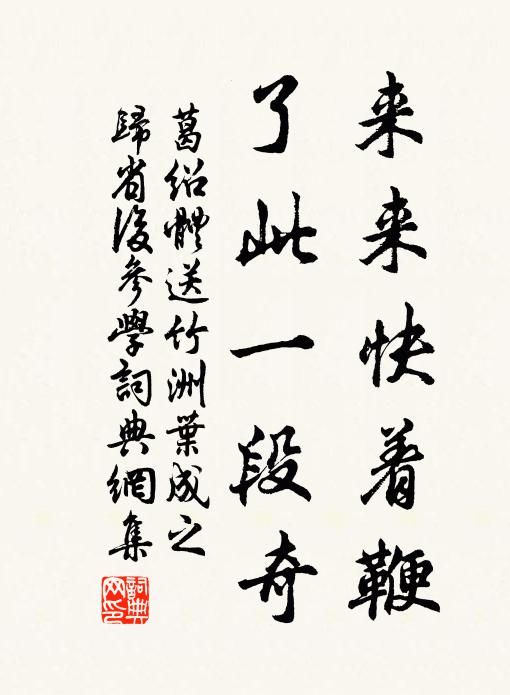 来来快着鞭
了此一段奇
葛绍體送竹洲葉成之
歸省後參學詞典網集
詞典網印